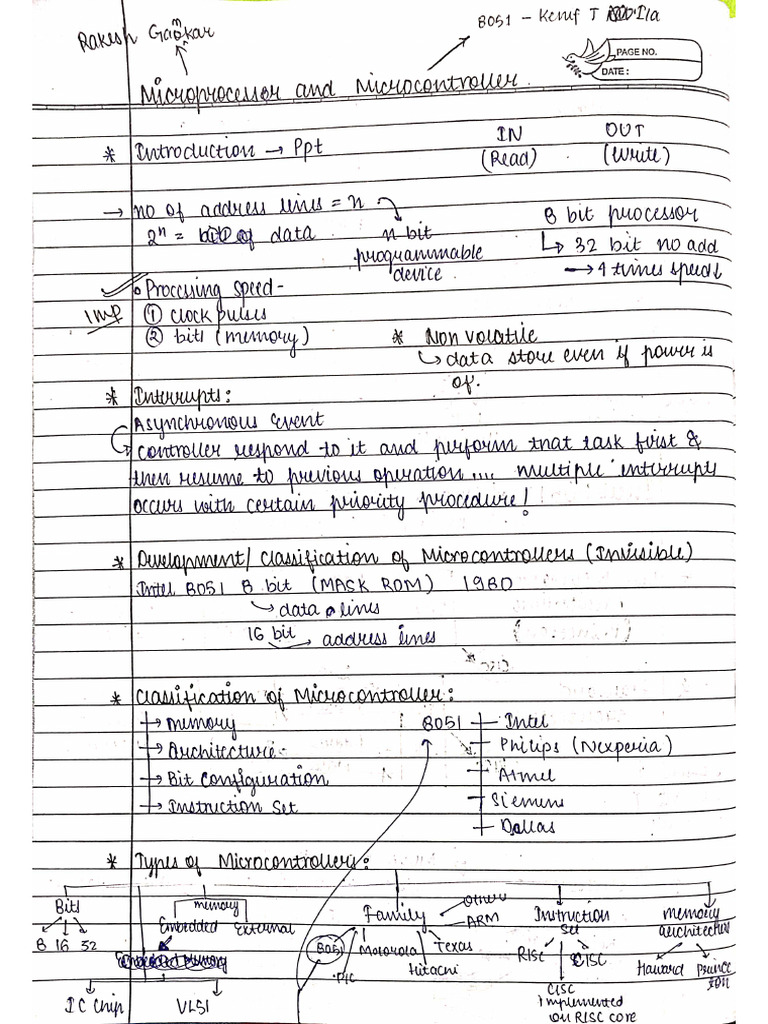 Rakesh Gaonkar
8051 - Kenif T
PAGE NO.
DATE :
Microprocessor and Microcontroller
* Introduction → Ppt IN OUT
(Read) (Write)
→ no of address lines = n
8 bit processor
2ⁿ = of data n bit
↳ 32 bit no add
programmable
device
→ 4 times speed
• Processing speed -
Imp
① clock pulses
② bits (memory)
* Non volatile
↳ data store even if power is
of.
* Interrupts:
Asynchronous Event
controller respond to it and perform that task first &
then resume to previous operation .... multiple interrupts
occurs with certain priority procedure!
* Development/ Classification of Microcontrollers (Invisible)
Intel 8051 8 bit (MASK ROM) 1980
data lines
16 bit address lines
* Classification of Microcontroller:
→ memory 8051 Intel
→ Architecture Philips (Nexperia)
→ Bit Configuration Atmel
→ Instruction Set Siemens
Dallas
* Types of Microcontrollers:
Bits memory Family Others ARM Instruction set memory architecture
8 16 32 Embedded External 8051 PIC Motorola Hitachi Texas RISC CISC Harvard Princeton
Embedded Memory
IC Chip VLSI
CISC
implemented
on RISC core